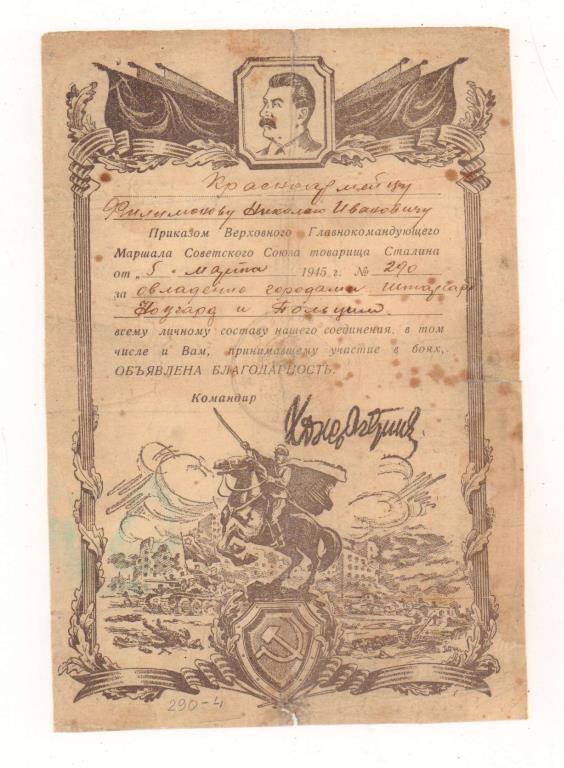 Красноармейцу
Филимонову Николаю Ивановичу
Приказом Верховного Главнокомандующего
Маршала Советского Союза товарища Сталина
от „5 “ марта 1945 г. № 290
за овладение городами Штаргард
Наугард и Польцин.
всему личному составу нашего соединения, в том
числе и Вам, принимавшему участие в боях,
ОБЪЯВЛЕНА БЛАГОДАРНОСТЬ.
Командир
290-4